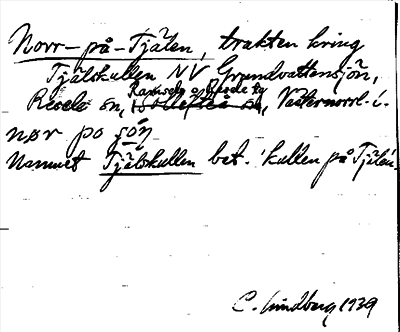 Norr-på-Tjälen, trakten kring
Tjälskullen NV Grundvattensjön,
Ramsele o Resele tg
Resele sn, Sollefteå sn, Västernorrl. l.
nør po
Namnet Tjälskullen bet. 'kullen på Tjälen'.
C. Lindberg 1939